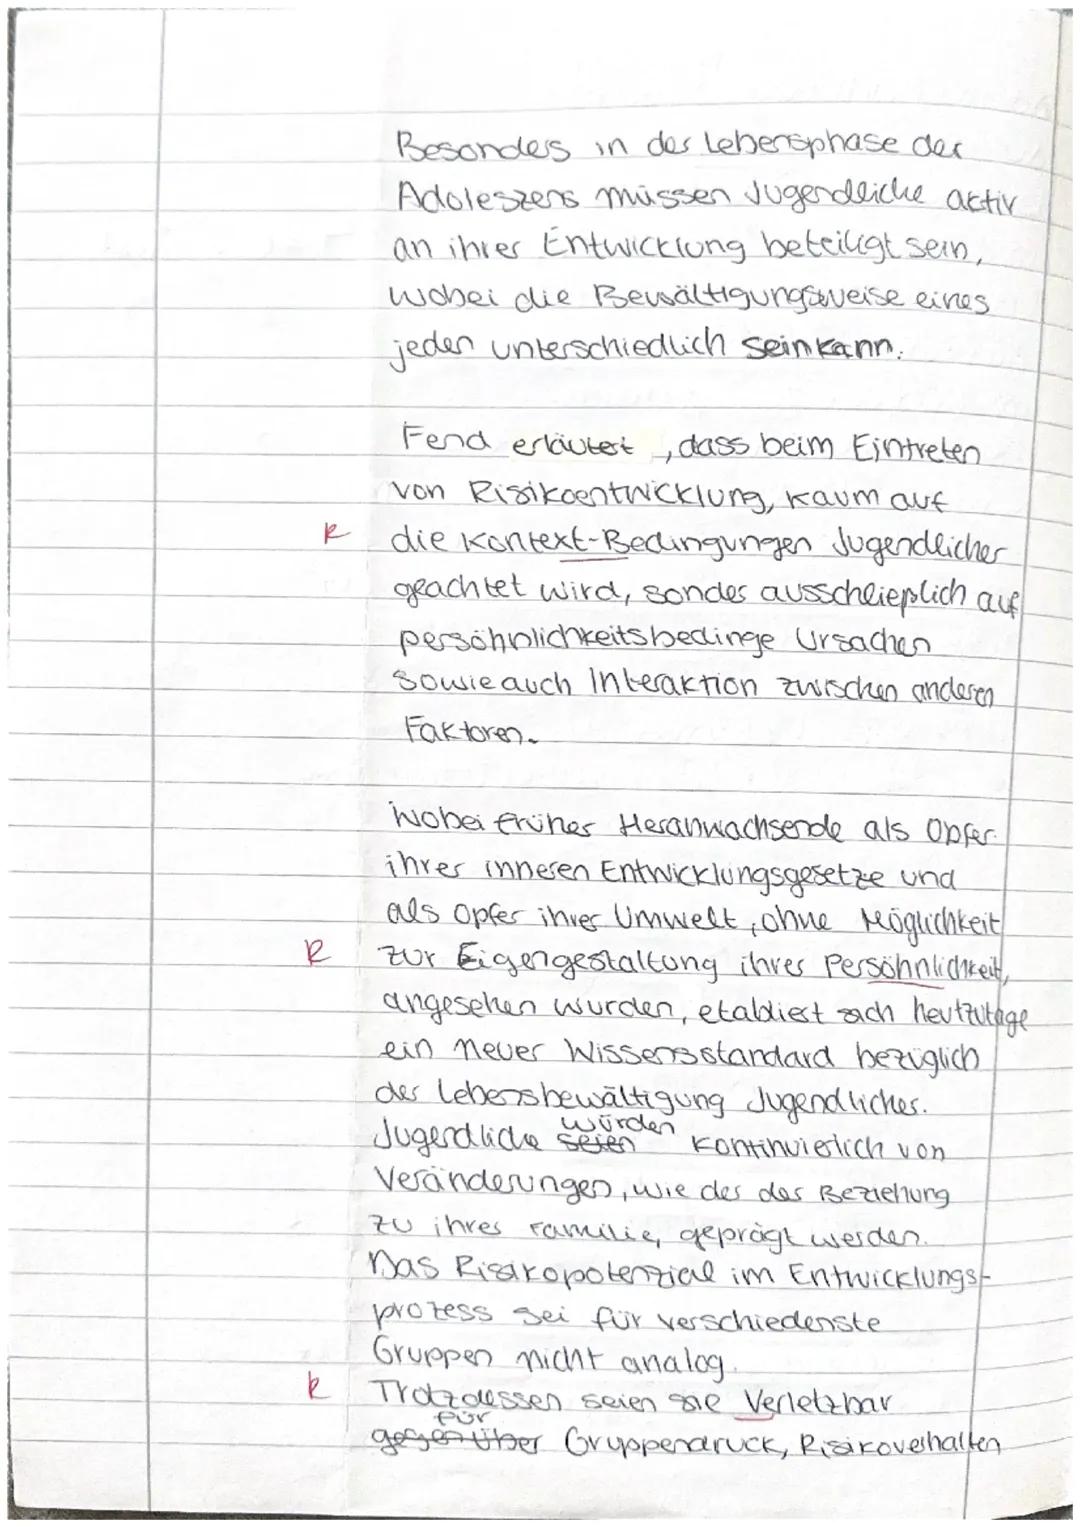 Besonders in der Lebensphase der
Adoleszens müssen Jugendliche aktiv
an ihrer Entwicklung beteiligt sein,
wobei die Bewältigungsweise eines
jeden unterschiedlich sein kann.
Fend erläutert, dass beim Eintreten
von Risikoentwicklung, kaum auf
R die Kontext-Bedingungen Jugendlicher
geachtet wird, sonder ausschließlich auf
persöhnlichkeitsbedinge Ursachen
sowie auch Interaktion zwischen anderen
Faktoren.
Wobei früher Heranwachsende als Opfer
ihrer inneren Entwicklungsgesetze und
als Opfer ihrer Umwelt, ohne Möglichkeit
R zur Eigengestaltung ihrer Persöhnlichkeit,
angesehen wurden, etabliert sich heutzutage
ein neuer Wissensstandard bezüglich
der Lebensbewältigung Jugendlicher.
würden
Jugendliche seien kontinuierlich von
Veränderungen, wie der der Beziehung
zu ihrer Familie, geprägt werden.
Das Risikopotenzial im Entwicklungs-
prozess sei für verschiedenste
Gruppen nicht analog.
R Trotzdessen seien sie Verletzbar
für
gegenüber Gruppendruck, Risikoverhalten